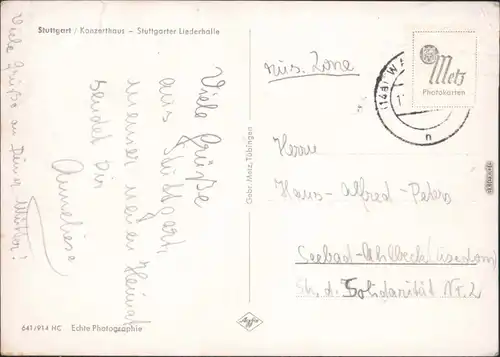 Stuttgart / Konzerthaus – Stuttgarter Liederhalle
Viele Grüße
aus Stuttgart,
meiner neuen Heimat
sendet Dir
Anneliese
Viele Grüße an Deine Mutter!
641/914 HC Echte Photographie
Gebr. Metz, Tübingen
Agfa
russ. Zone
Metz
Photokarten
(14a) WA
n
Herrn
Hans-Alfred-Peters
Seebad-Ahlbeck (Usedom)
Str. d. Solidarität Nr. 2